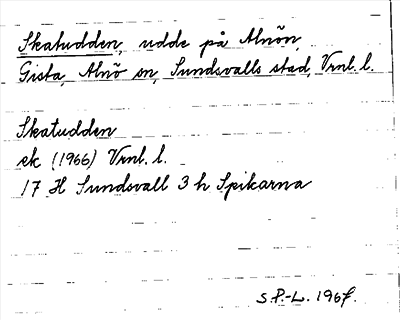 Skatudden, udde på Alnön,
Gista, Alnö sn, Sundsvalls stad, Vrnl. l.
Skatudden
ek (1966) Vrnl. l.
17 H Sundsvall 3 h Spikarna
S.P.-L. 1967.